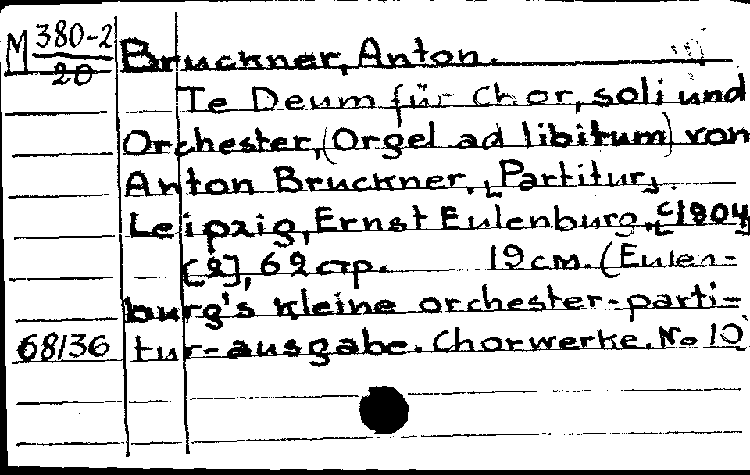 M 380-2
20
Bruckner, Anton.
Te Deum für Chor, soli und
Orchester, (Orgel ad libitum) von
Anton Bruckner. [Partitur].
Leipzig, Ernst Eulenburg, [c1904]
[2], 62 стр. 19 cm. (Eulen-
burg's kleine orchester-parti-
68/36 tur-ausgabe. Chorwerke. No 10